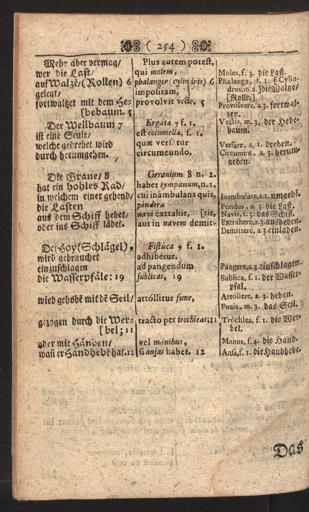 ( 254 )
Mehr aber vermag/
wer die Last/
auf Walze/ (Rollen) 6
gelegt/
fortwaltzet mit dem He-
[bebaum. 5
Der Wellbaum 7
ist eine Seule/
welche gedrehet wird
durch herumgehen.
Die Grane/ 8
hat ein hohles Rad/
in welchem einer gehend/
die Lasten
aus dem Schiff hebet/
oder ins Schiff läst.
Der Hoy (Schlägel) 9
wird gebrauchet
einzuschlagen
die Wasserpfäle: 19
wird gehobē mit dē Seil/
gezogen durch die Wer-
[bel; 11
oder mit Händen/
wañ er Handhebē hat. 12
Plus autem potest,
qui molem,
phalangæ (cylindris) 6
impositam,
provolvit vecte. 5
Ergata 7 f. 1.
est columella, f. 1.
quæ versatur
circumeundo.
Geranium 8 n. 2.
habet tympanum, n. 2.
cui inambulans quis,
pondera
navi extrahit,
aut in navem demit-
[tit.
Fistuca 9 f. 1.
adhibetur,
ad pangendum
sublicas, 19
attollitur fune,
tracto per trochleas; 11
vel manibus,
si ansas habet. 12
Moles, f. 3. die Last.
Phalanga, f. 1. [Cylin-
drus, m. 2.] die Walze/
[Rolle.]
Provolvere, a. 3. fortwal-
zen.
Vectis, m. 3. der Hebe-
baum.
Versare, a. 1. drehen.
Circumire, a. 3. herum-
gehen.
Inambulare, a. 1. umgehē.
Pondus, n. 3. die Last.
Navis, f. 3. das Schiff.
Extrahere, a. 3 ausheben.
Demittere, a. 3. einladen.
Pangere, a. 3. einschlagen.
Sublica, f. 1. der Wasser-
pfal.
Attollere, a. 3. heben.
Funis, m. 3. das Seil.
Trochlea, f. 1. die Wer-
bel.
Manus, f. 4. die Hand.
Ansa, f. 1. die Handhebe.
Das